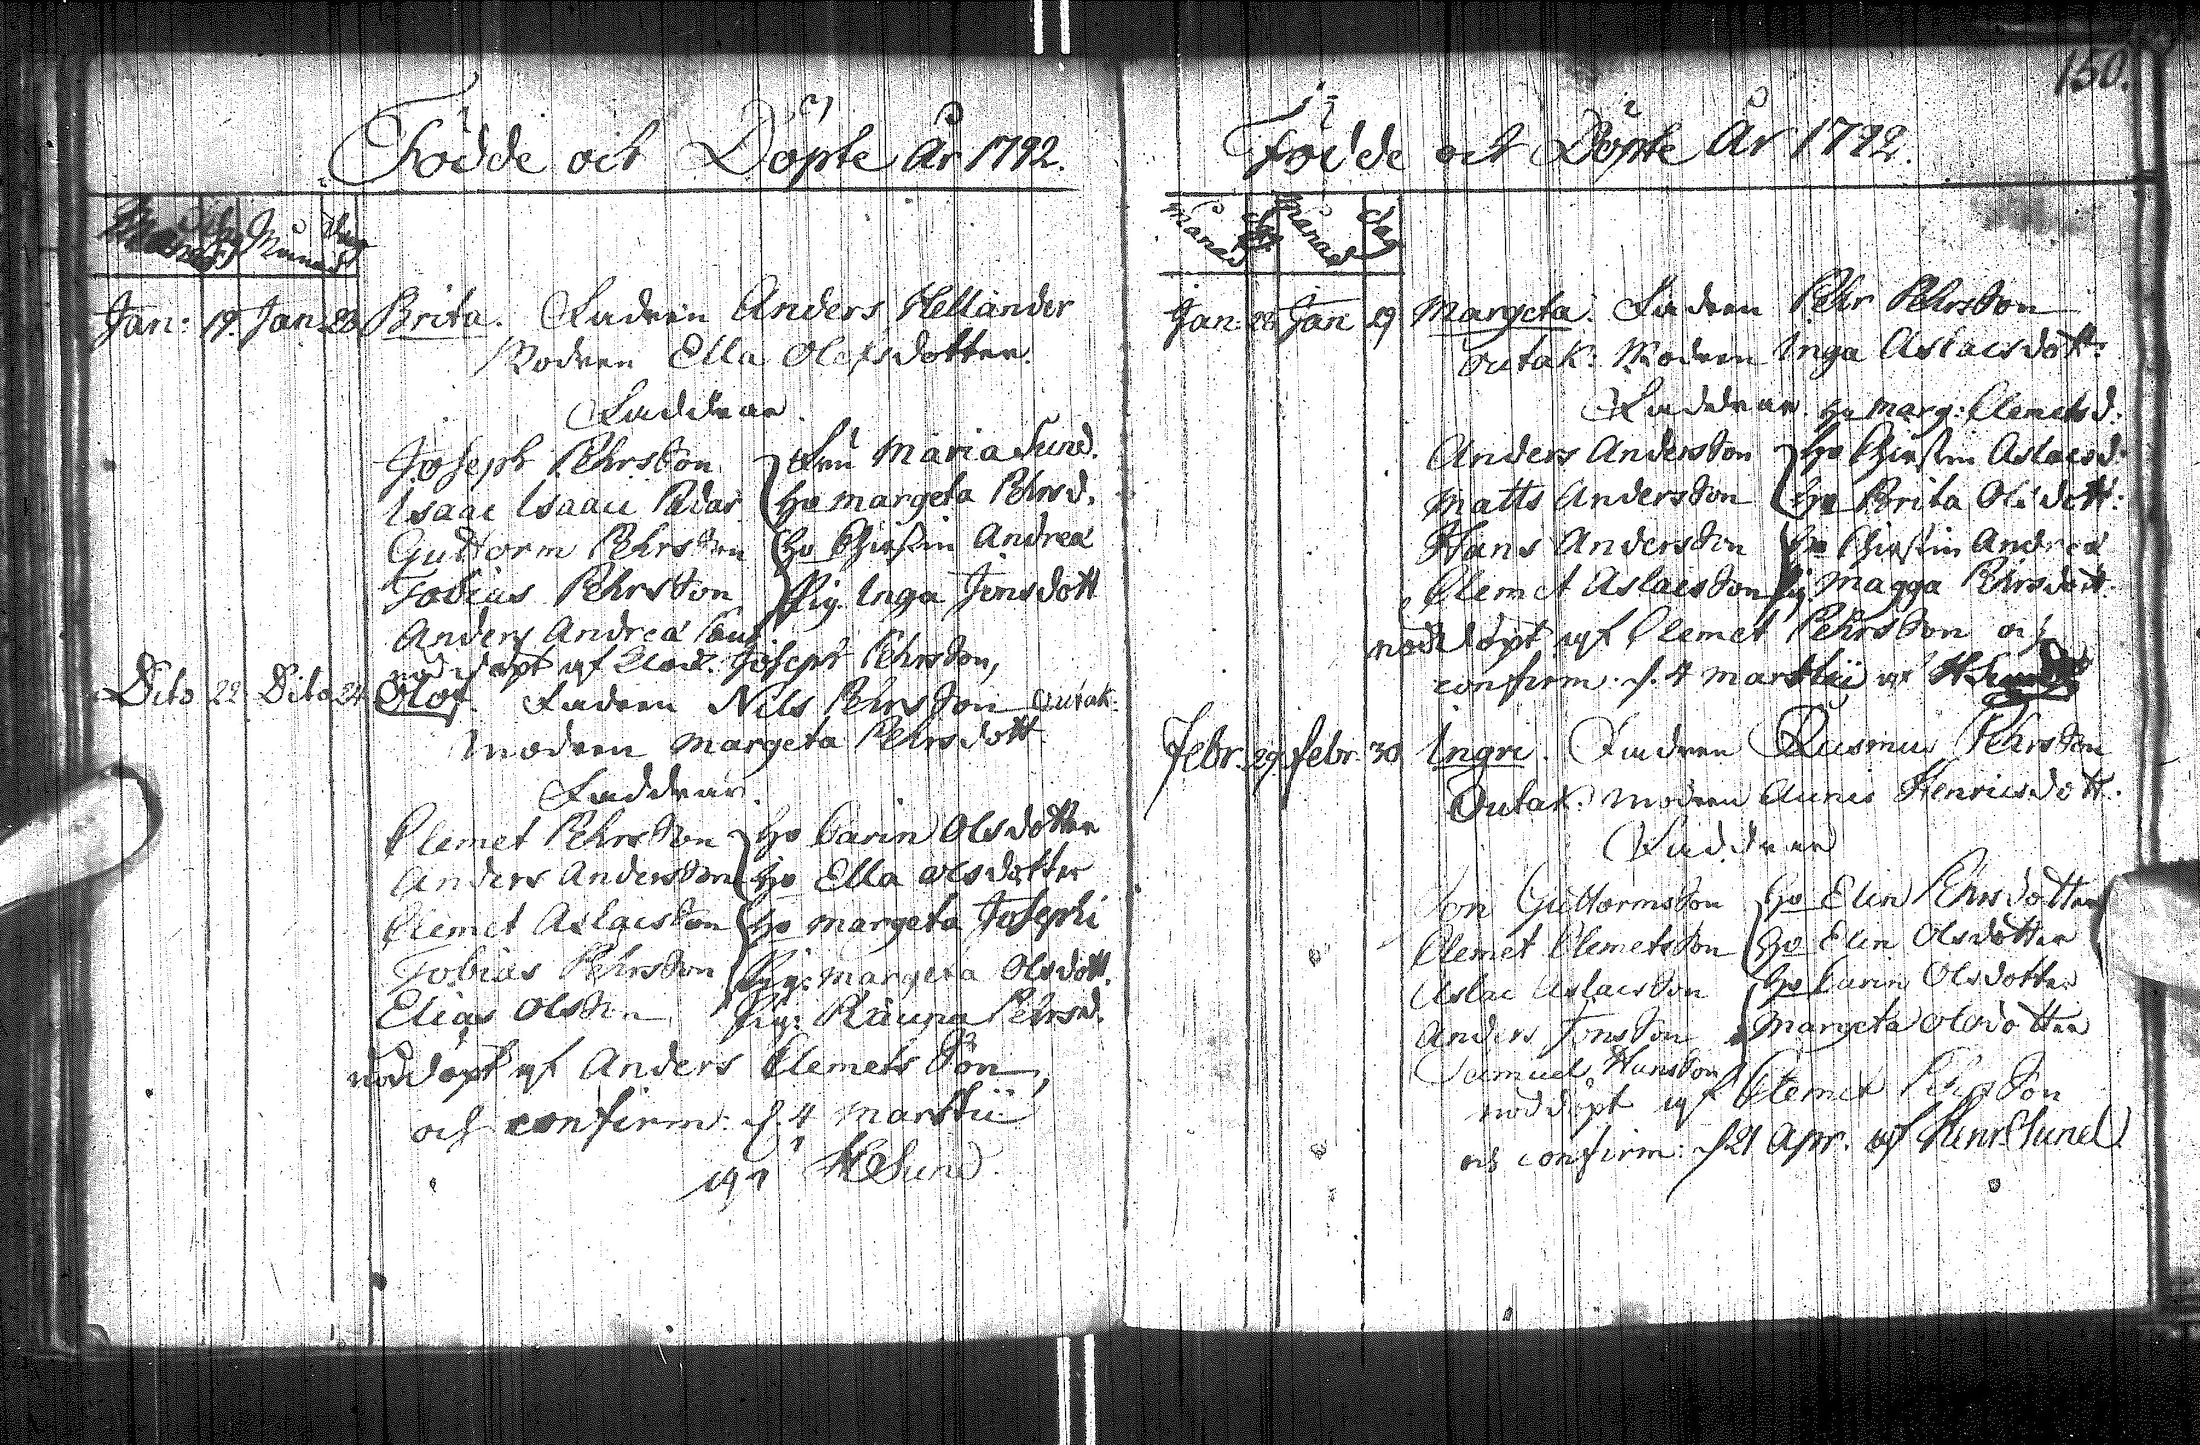 Födde och Döpte År 1792.
Månad Dag Månad Dag
Jan: 19. Jan. 23 Brita. Fadren Anders Hellander
Modren Ella Olofsdotter.
Faddrar.
Joseph Pehrsson Fru Maria Sund.
Isaac Isaaci Hu margeta Pehrsd.
Guttorm Pehrsson Hu Chirstin Andreæ
Tobias Pehrsson Pig. Inga Jonsdott
Anders Andreæ
nöddöpt af Joseph Pehrsson,
Dito 22 Dito 24 Olof. Fadren Nils Pehrsson Outak:
Modren margeta Pehrsdott.
Faddrar.
Clemet Pehrsson Hu Carin Olsdotter
Anders Andersson Hu Ella Olsdotter
Clemet Aslacsson Hu margeta Josephi
Tobias Pehrsson Pig: margeta Olsdott.
Elias Olsson Pig: Rauna Pehrsd.
nöddöpt af Anders Clemetsson,
och confirm: d. 4 Martii
af HSund.
150.
Födde och Döpte År 1792.
Månad Dag Månad Dag
Jan: 28 Jan 29 Margeta. Fadren Pehr Pehrsson
Outak: Modren Inga Aslacsdott:
Faddrar. Hu marg: Clemetsd:
Anders Andersson Hu Chirstin Aslacsd:
Matts Andersson Hu Brita Olsdott:
Hans Andersson Hu Chirstin Andreæ
Clemet Aslacsson Pig. Magga Pehrsdott.
nöddöpt af Clemet Pehrsson och
confirm. d. 4 martii af HSund
Febr. 29 febr. 30 Ingri. Fadren Rasmus Pehrsson
Outak: Modren Aunis Henricsdott.
Faddrar
Jon Guttormsson Hu Elin Pehrsdotter
Clemet Clemetsson Hu Elin Olsdotter
Aslac Aslacsson Hu Carin Olsdotter
Anders Jonsson Margeta Olsdotter
Samuel Hansson
nöddöpt af Clemet Pehrsson
och confirm: d 21 Apr. af Henr Sund